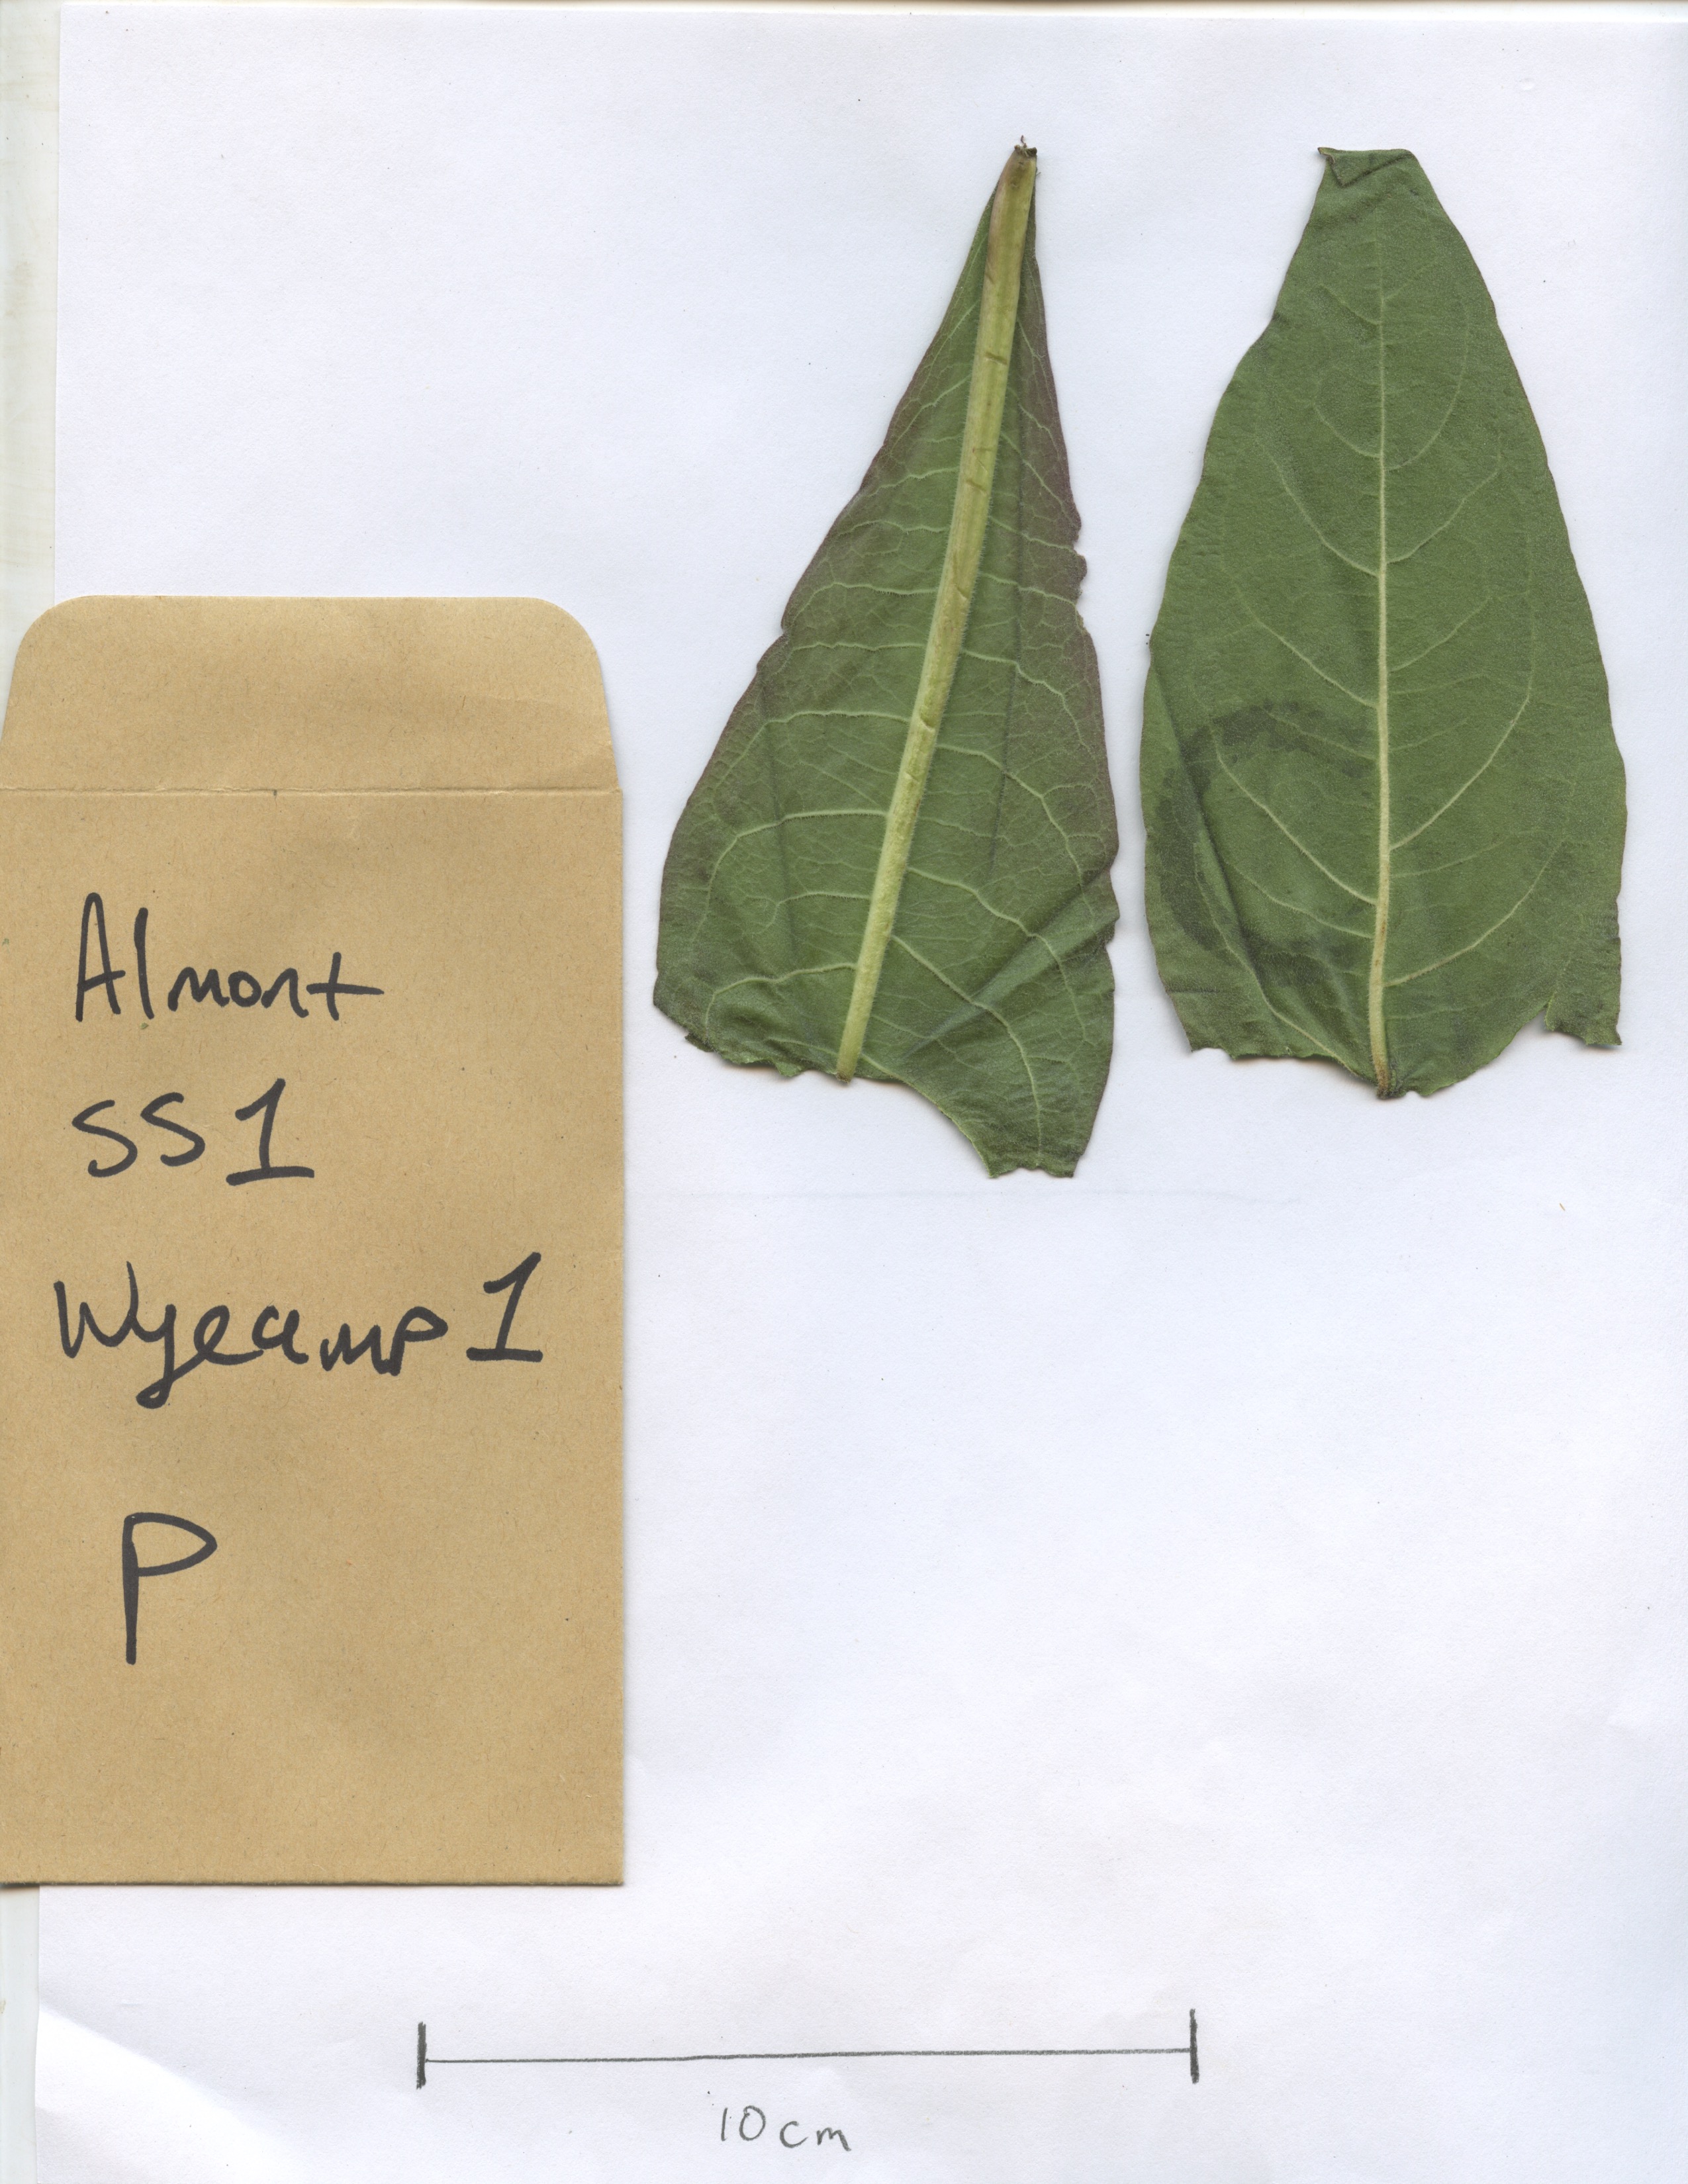 Almont
SS1
Wyeamp1
P
10cm